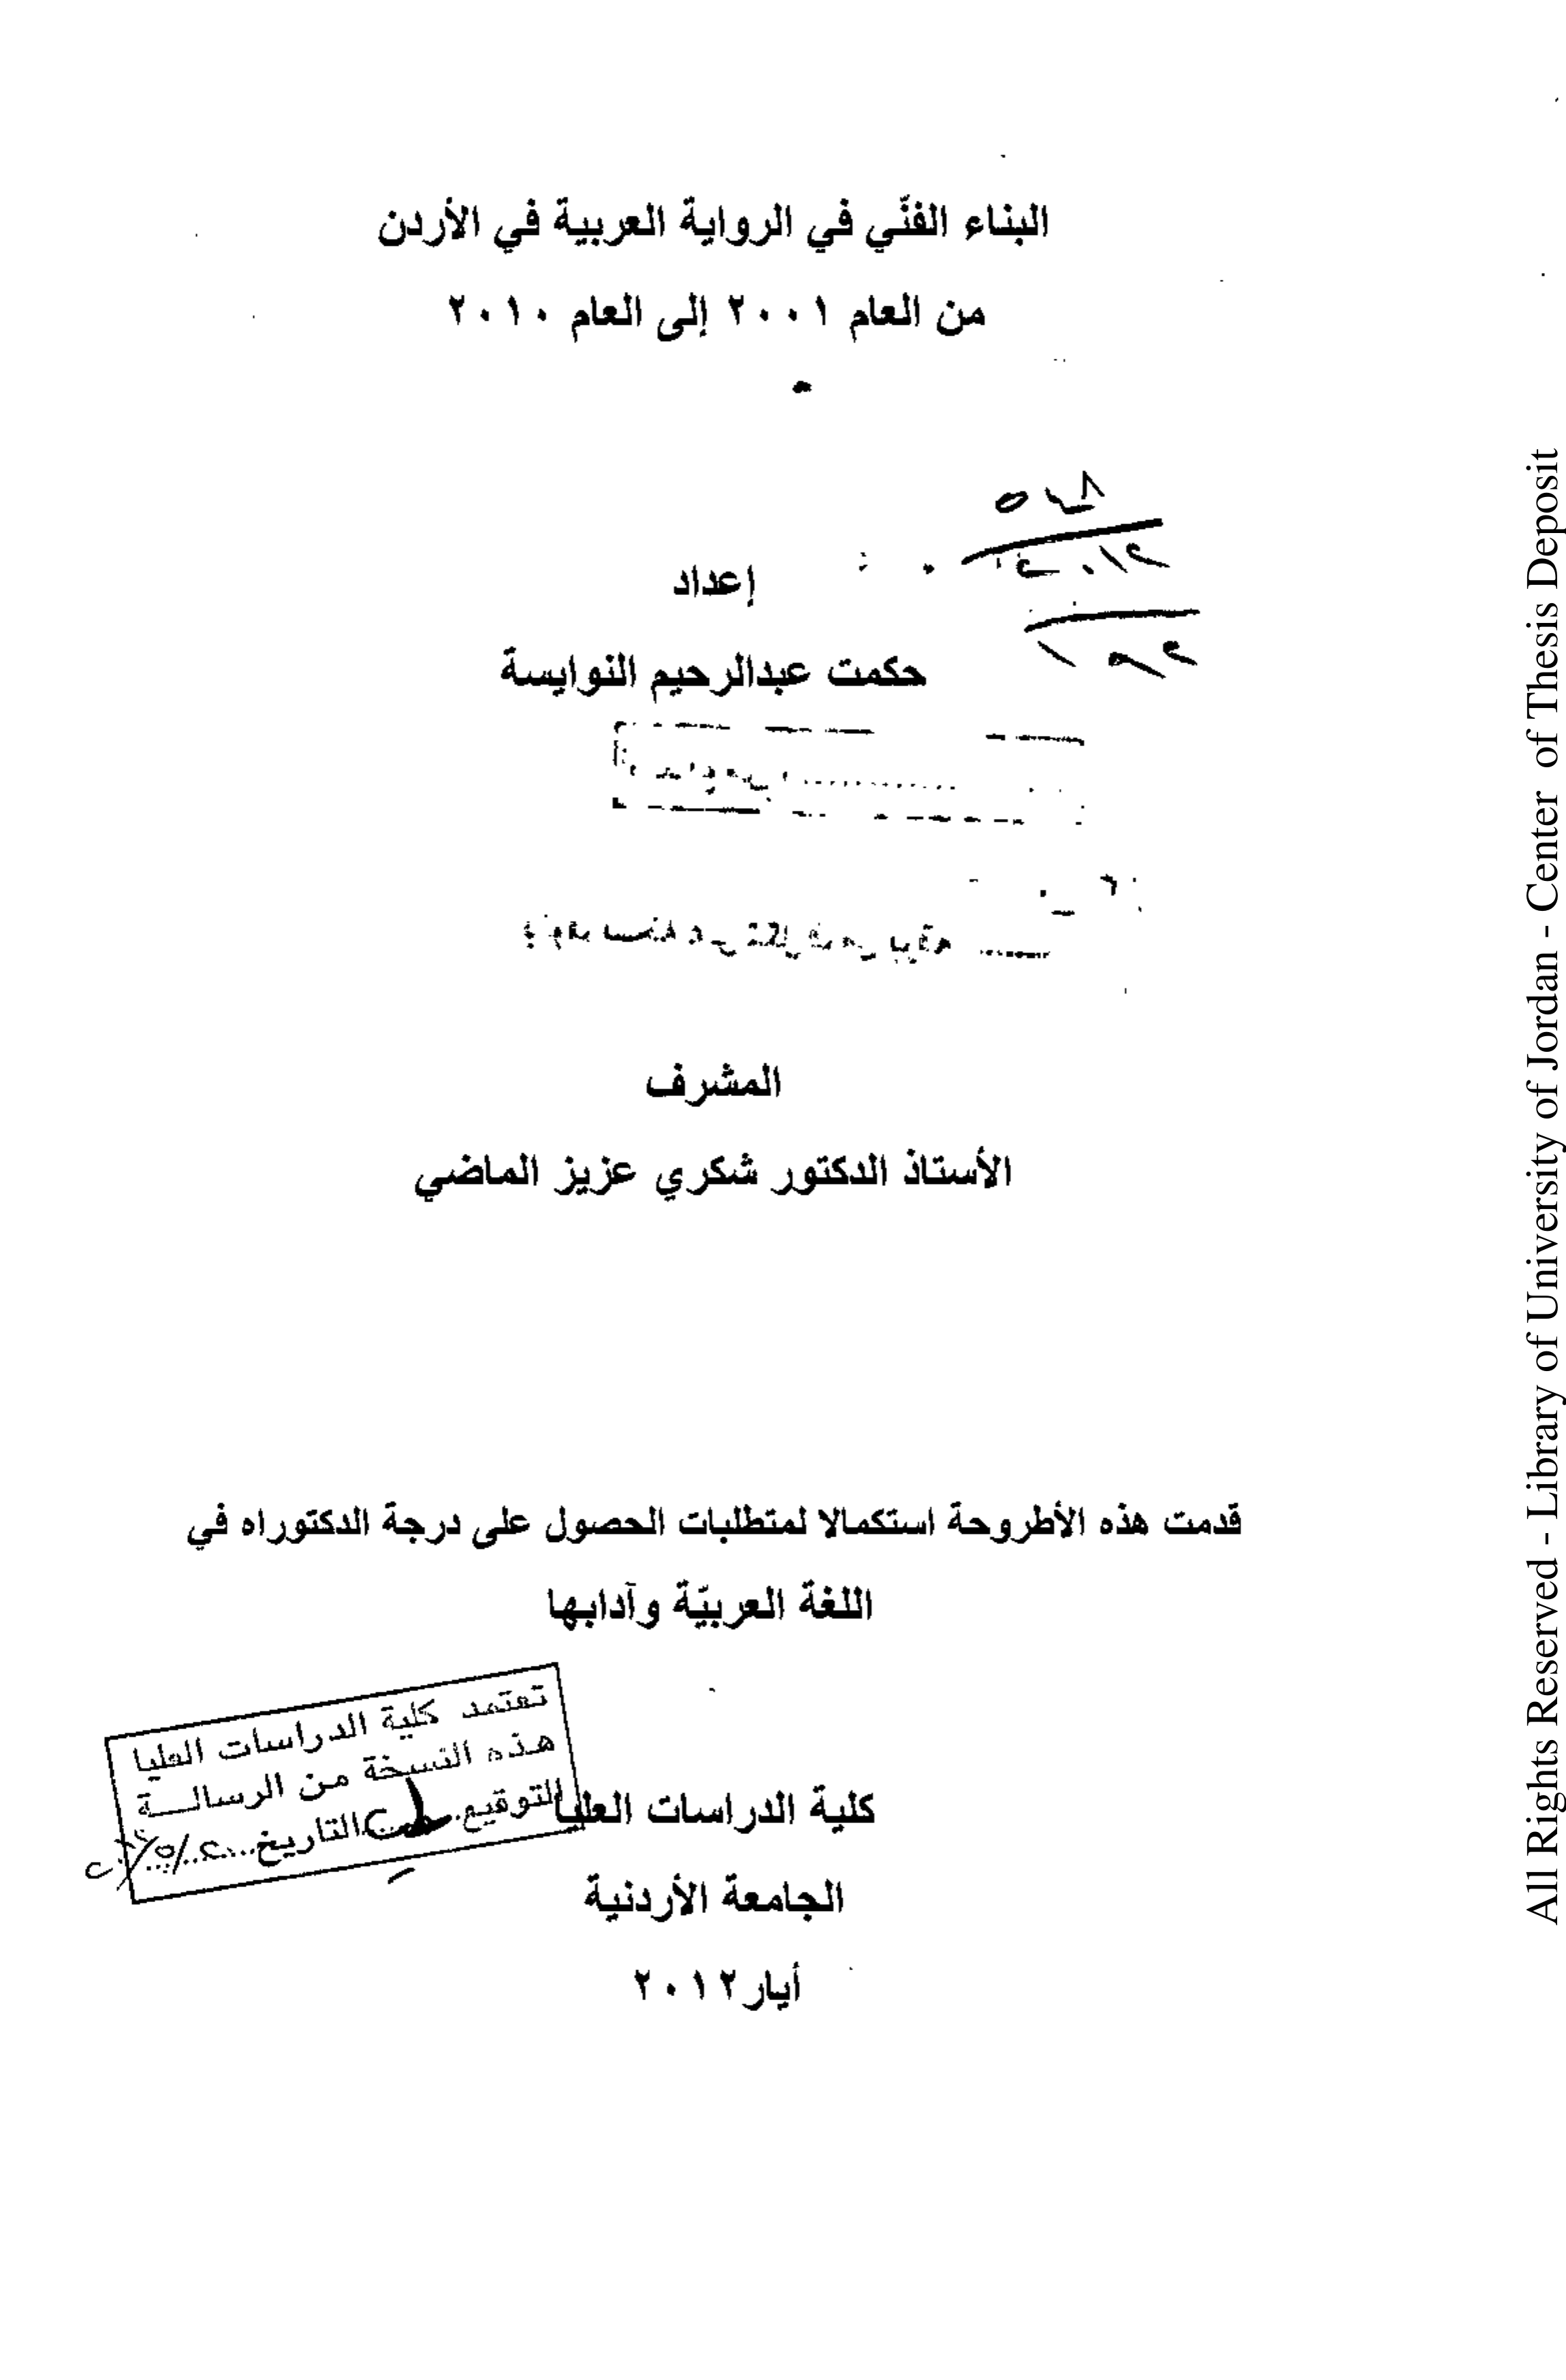 البناء الفنّي في الرواية العربية في الأردن
من العام ٢٠٠١ إلى العام ٢٠١٠
إعداد
حكمت عبدالرحيم النوايسة
المشرف
الأستاذ الدكتور شكري عزيز الماضي
قدمت هذه الأطروحة استكمالا لمتطلبات الحصول على درجة الدكتوراه في
اللغة العربيّة وآدابها
تعتمد كلية الدراسات العليا
هذه النسخة من الرسالـــة
التوقيع.......التاريخ
كلية الدراسات العليا
الجامعة الأردنية
أيار٢٠١٢
All Rights Reserved - Library of University of Jordan - Center of Thesis Deposit